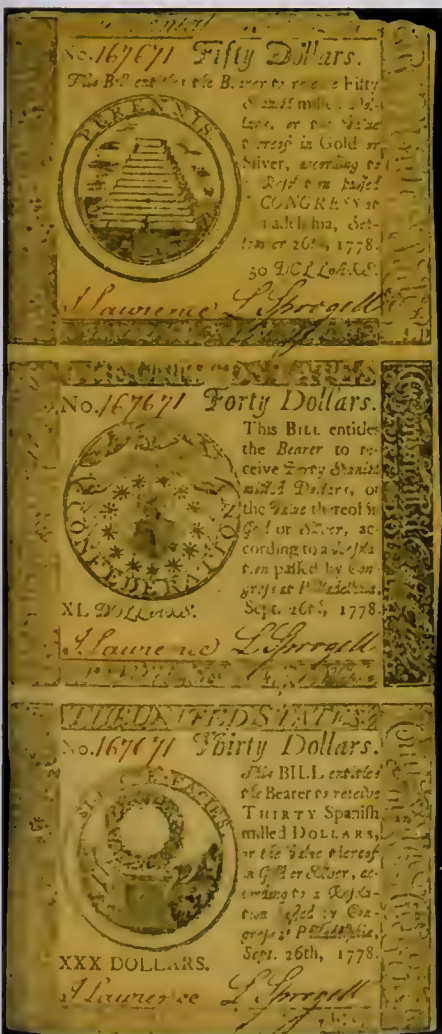 No. 167671 Fifty Dollars.
This Bill entitles the Bearer to receive Fifty
Spanish milled Dol-
lars, or the Value
thereof in Gold or
Silver, according to
a Resolution passed
CONGRESS at
Philadelphia, Sep-
tember 26th, 1778.
PERENNIS
50 DOLLARS.
J Lawrence L Sprogell
No. 167671 Forty Dollars.
This BILL entitles
the Bearer to re-
ceive Forty Spanish
milled Dollars, or
the Value thereof in
Gold or Silver, ac-
cording to a Resolu-
tion passed by Con-
gress at Philadelphia,
Sept. 26th, 1778.
CONFEDERATION
XL DOLLARS.
J Lawrence L Sprogell
THE UNITED STATES
No. 167671 Thirty Dollars.
This BILL entitles
the Bearer to receive
THIRTY Spanish
milled DOLLARS,
or the Value thereof
in Gold or Silver, ac-
cording to a Resolu-
tion passed by Con-
gress at Philadelphia,
Sept. 26th, 1778.
FACIES
XXX DOLLARS.
J Lawrence L Sprogell